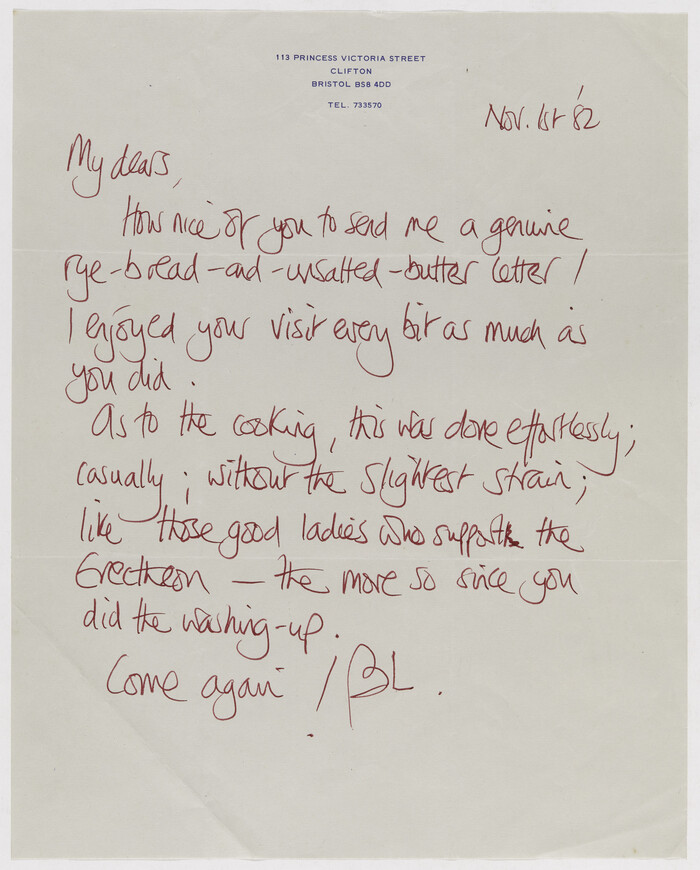 113 PRINCESS VICTORIA STREET
CLIFTON
BRISTOL BS8 4DD
TEL. 733570
Nov. 1st '82
My dears,
How nice of you to send me a genuine
rye-bread-and-unsalted-butter letter!
I enjoyed your visit every bit as much as
you did.
As to the cooking, this was done effortlessly;
casually; without the slightest strain;
like those good ladies who support the
Erectheon — the more so since you
did the washing-up.
Come again! BL.